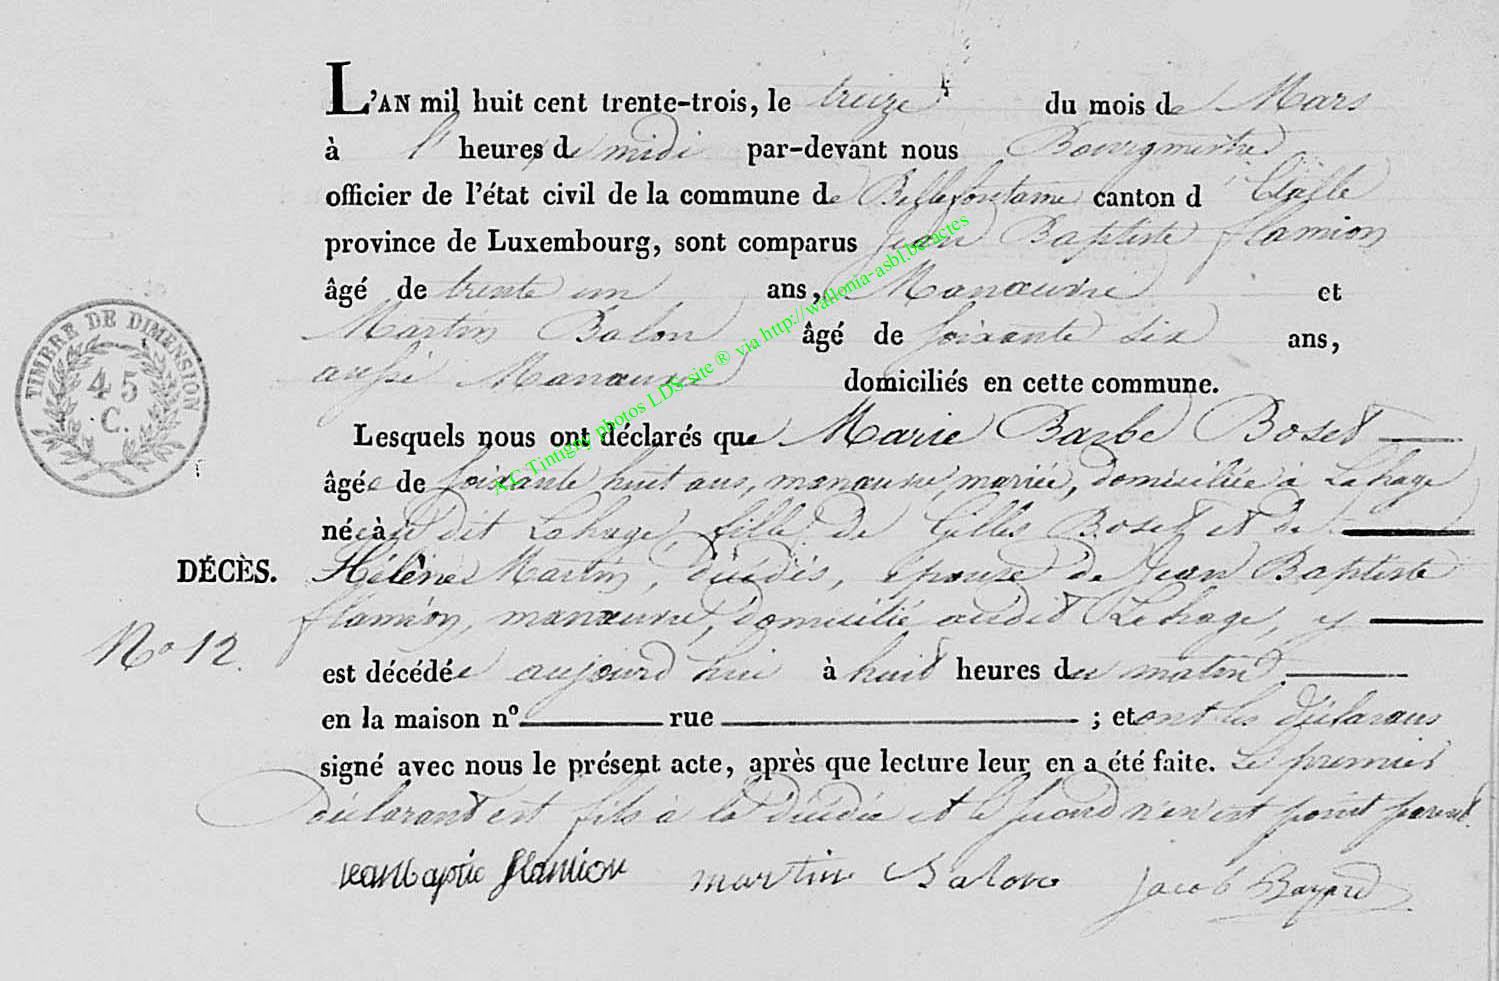 L'AN mil huit cent trente-trois, le treize du mois de Mars
à heures de midi par-devant nous Bourgmestre
officier de l'état civil de la commune de Bellefontaine canton d' Etalle
province de Luxembourg, sont comparus Jean Baptiste flamion
âgé de trente un ans, Manœuvre et
Martin Balon âgé de soixante six ans,
aussi Manœuvre domiciliés en cette commune.
Lesquels nous ont déclarés que Marie Barbe Boset
âgée de soixante huit ans, manœuvre, mariée, domiciliée à Lahage
née audit Lahage, fille de Gilles Boset et de
DÉCÈS. Hélène Martin, décédés, épouse de Jean Baptiste
flamion, manœuvre, domicilié audit Lahage, y
No 12.
est décédée aujourd'hui à huit heures du matin.
en la maison nº rue ; et ont les déclarans
signé avec nous le présent acte, après que lecture leur en a été faite. Le premier
déclarant est fils à la décédée et le second n'en est point parent.
Jean Baptiste flamion martin Balon Jacob Bayard
TIMBRE DE DIMENSION
45
C.
A.C Tintigny photos LDS site ® via http://wallonia-asbl.be/actes